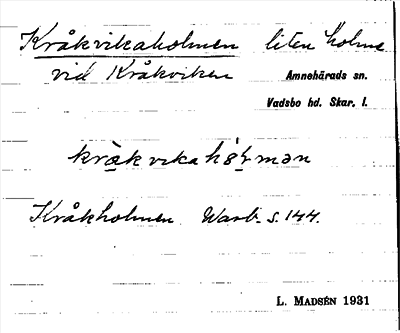 Kråkvikaholmen liten holme
vid Kråkviken Amnehärads sn.
Vadsbo hd. Skar. l.
Kråkholmen Warb. s. 144.
L. MADSÉN 1931